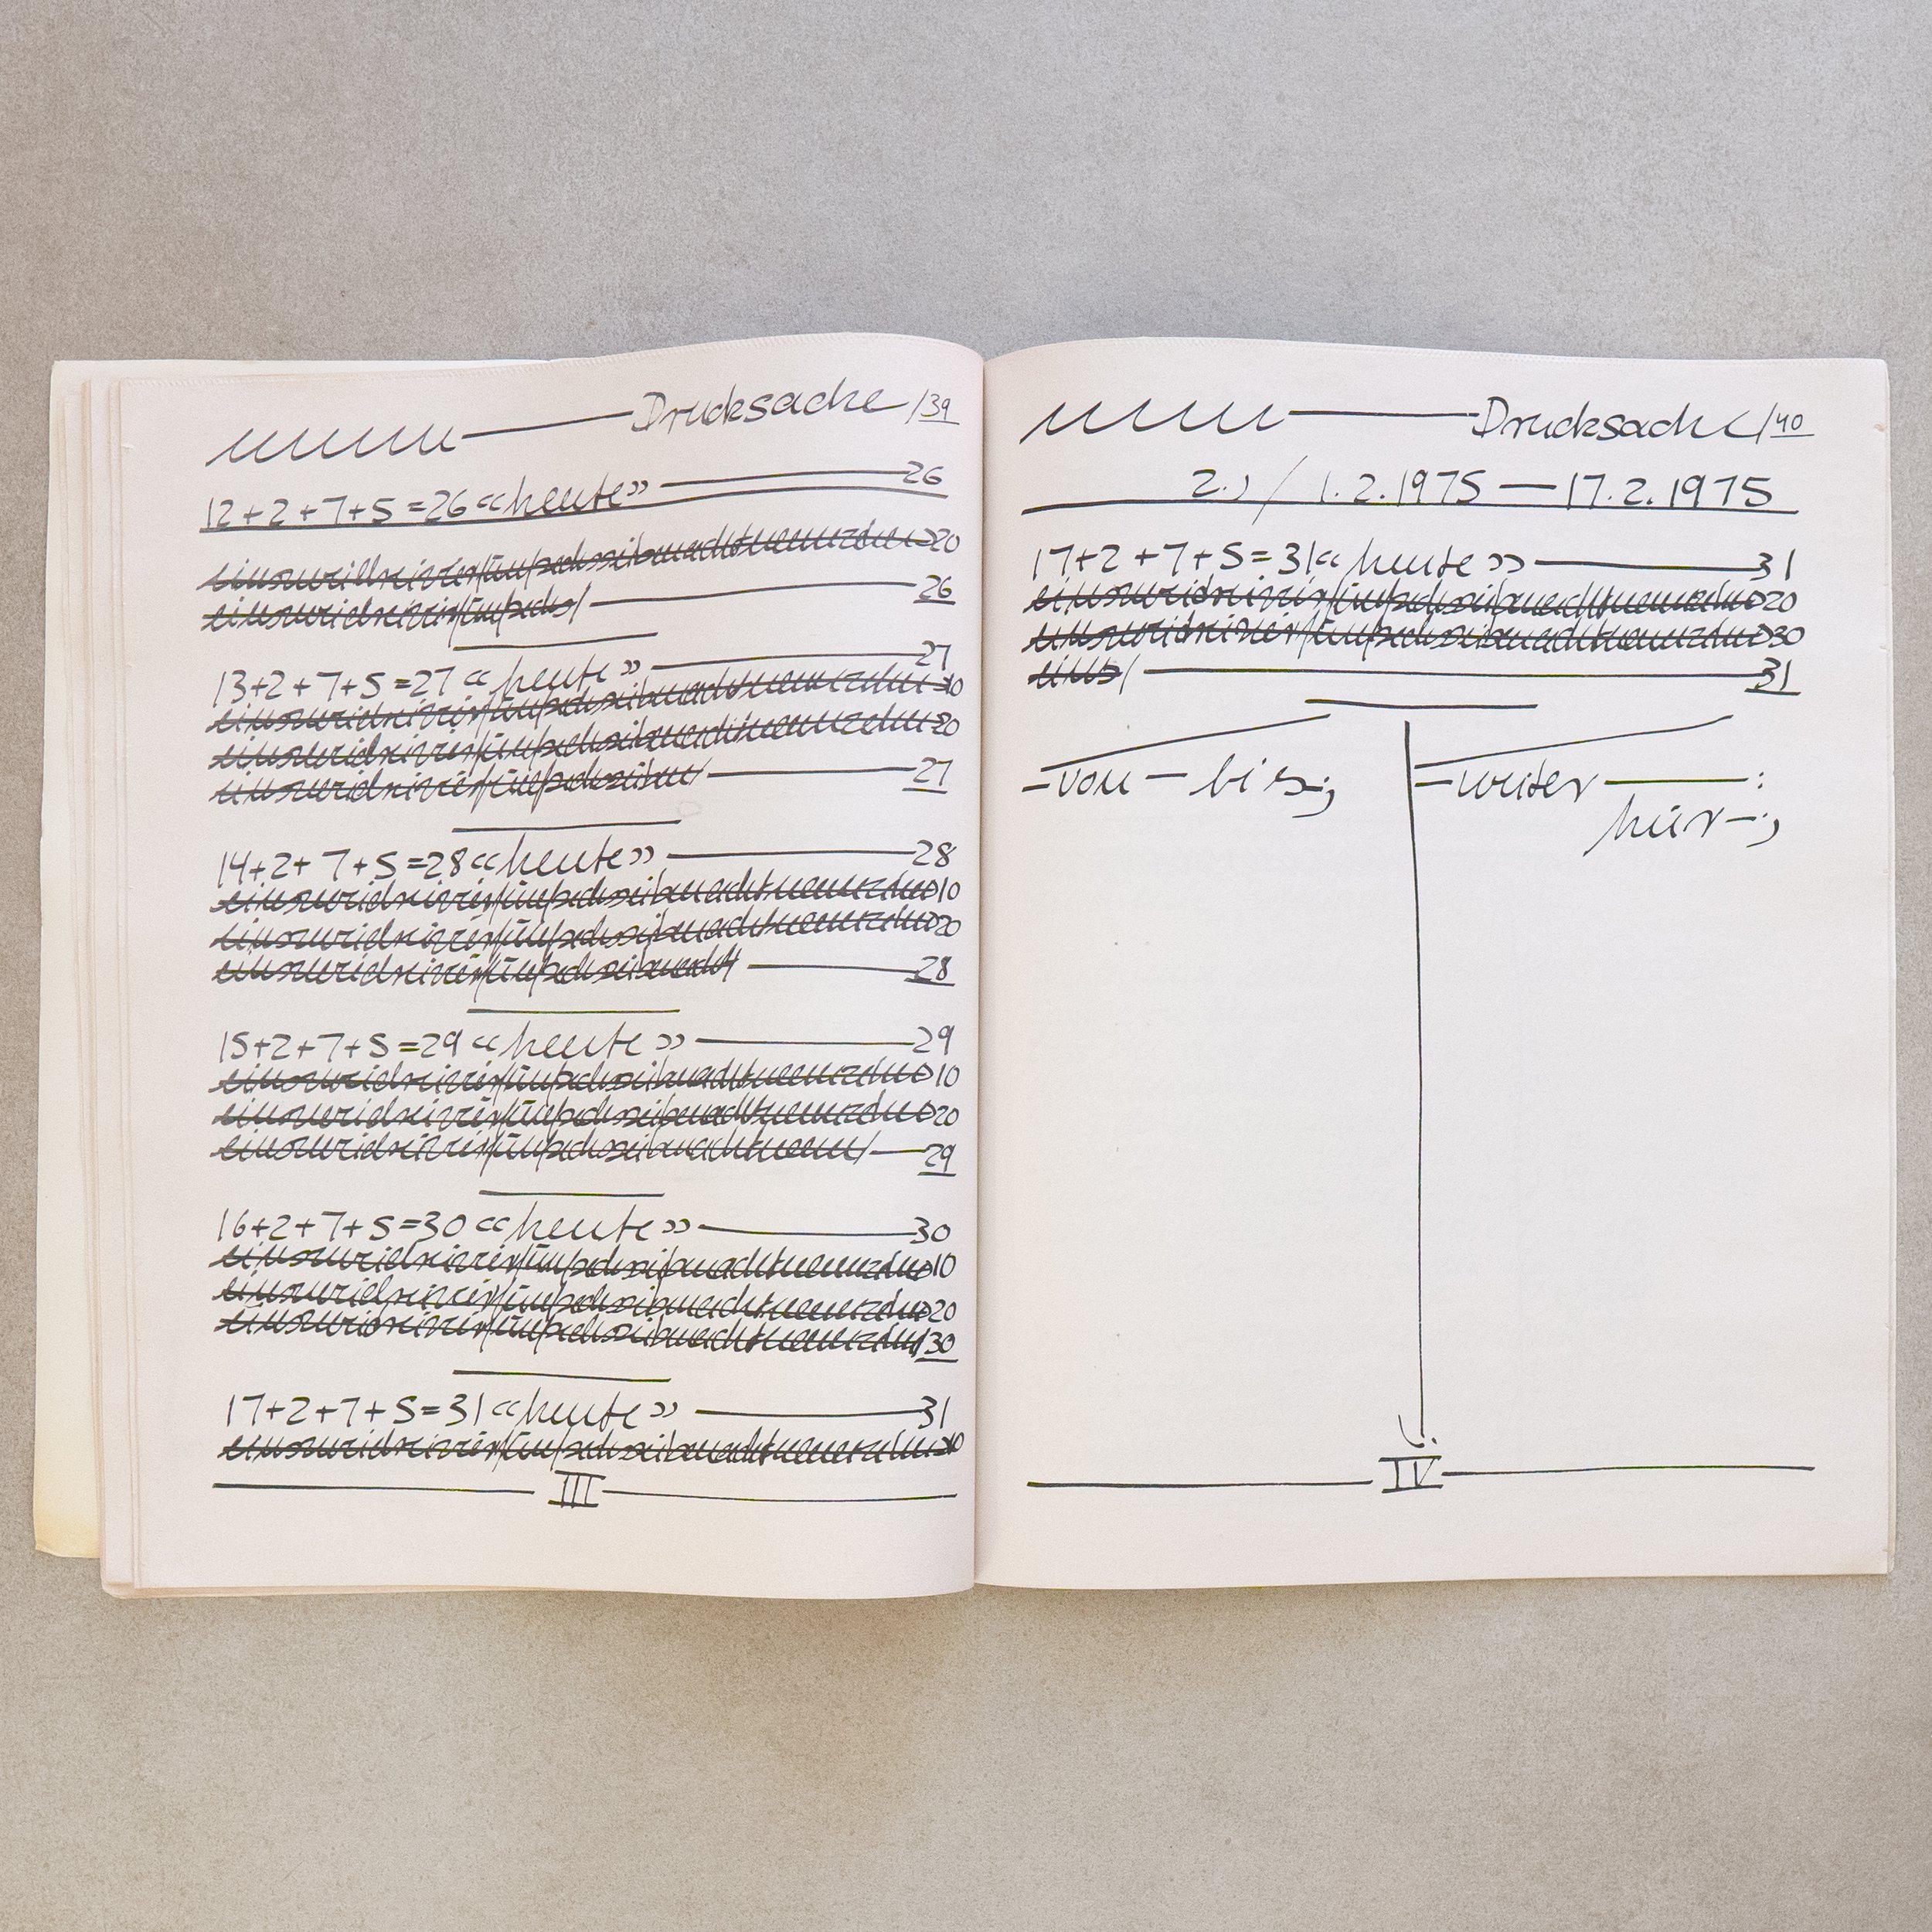 Drucksache /39
12+2+7+5=26 «heute» 26
einszweidreivierfünfsechssiebenachtneunzehn 20
einszweidreivierfünfsechs/ 26
13+2+7+5=27 «heute» 27
einszweidreivierfünfsechssiebenachtneunzehn 10
einszweidreivierfünfsechssiebenachtneunzehn 20
einszweidreivierfünfsechssieben/ 27
14+2+7+5=28 «heute» 28
einszweidreivierfünfsechssiebenachtneunzehn 10
einszweidreivierfünfsechssiebenachtneunzehn 20
einszweidreivierfünfsechssiebenacht/ 28
15+2+7+5=29 «heute» 29
einszweidreivierfünfsechssiebenachtneunzehn 10
einszweidreivierfünfsechssiebenachtneunzehn 20
einszweidreivierfünfsechssiebenachtneun/ 29
16+2+7+5=30 «heute» 30
einszweidreivierfünfsechssiebenachtneunzehn 10
einszweidreivierfünfsechssiebenachtneunzehn 20
einszweidreivierfünfsechssiebenachtneunzehn/ 30
17+2+7+5=31 «heute» 31
einszweidreivierfünfsechssiebenachtneunzehn 10
III
Drucksache /40
2.) / 1.2.1975 — 17.2.1975
17+2+7+5=31 «heute» 31
einszweidreivierfünfsechssiebenachtneunzehn 20
einszweidreivierfünfsechssiebenachtneunzehn 30
eins/ 31
– von – bis;
– weiter — :
hier –;
IV